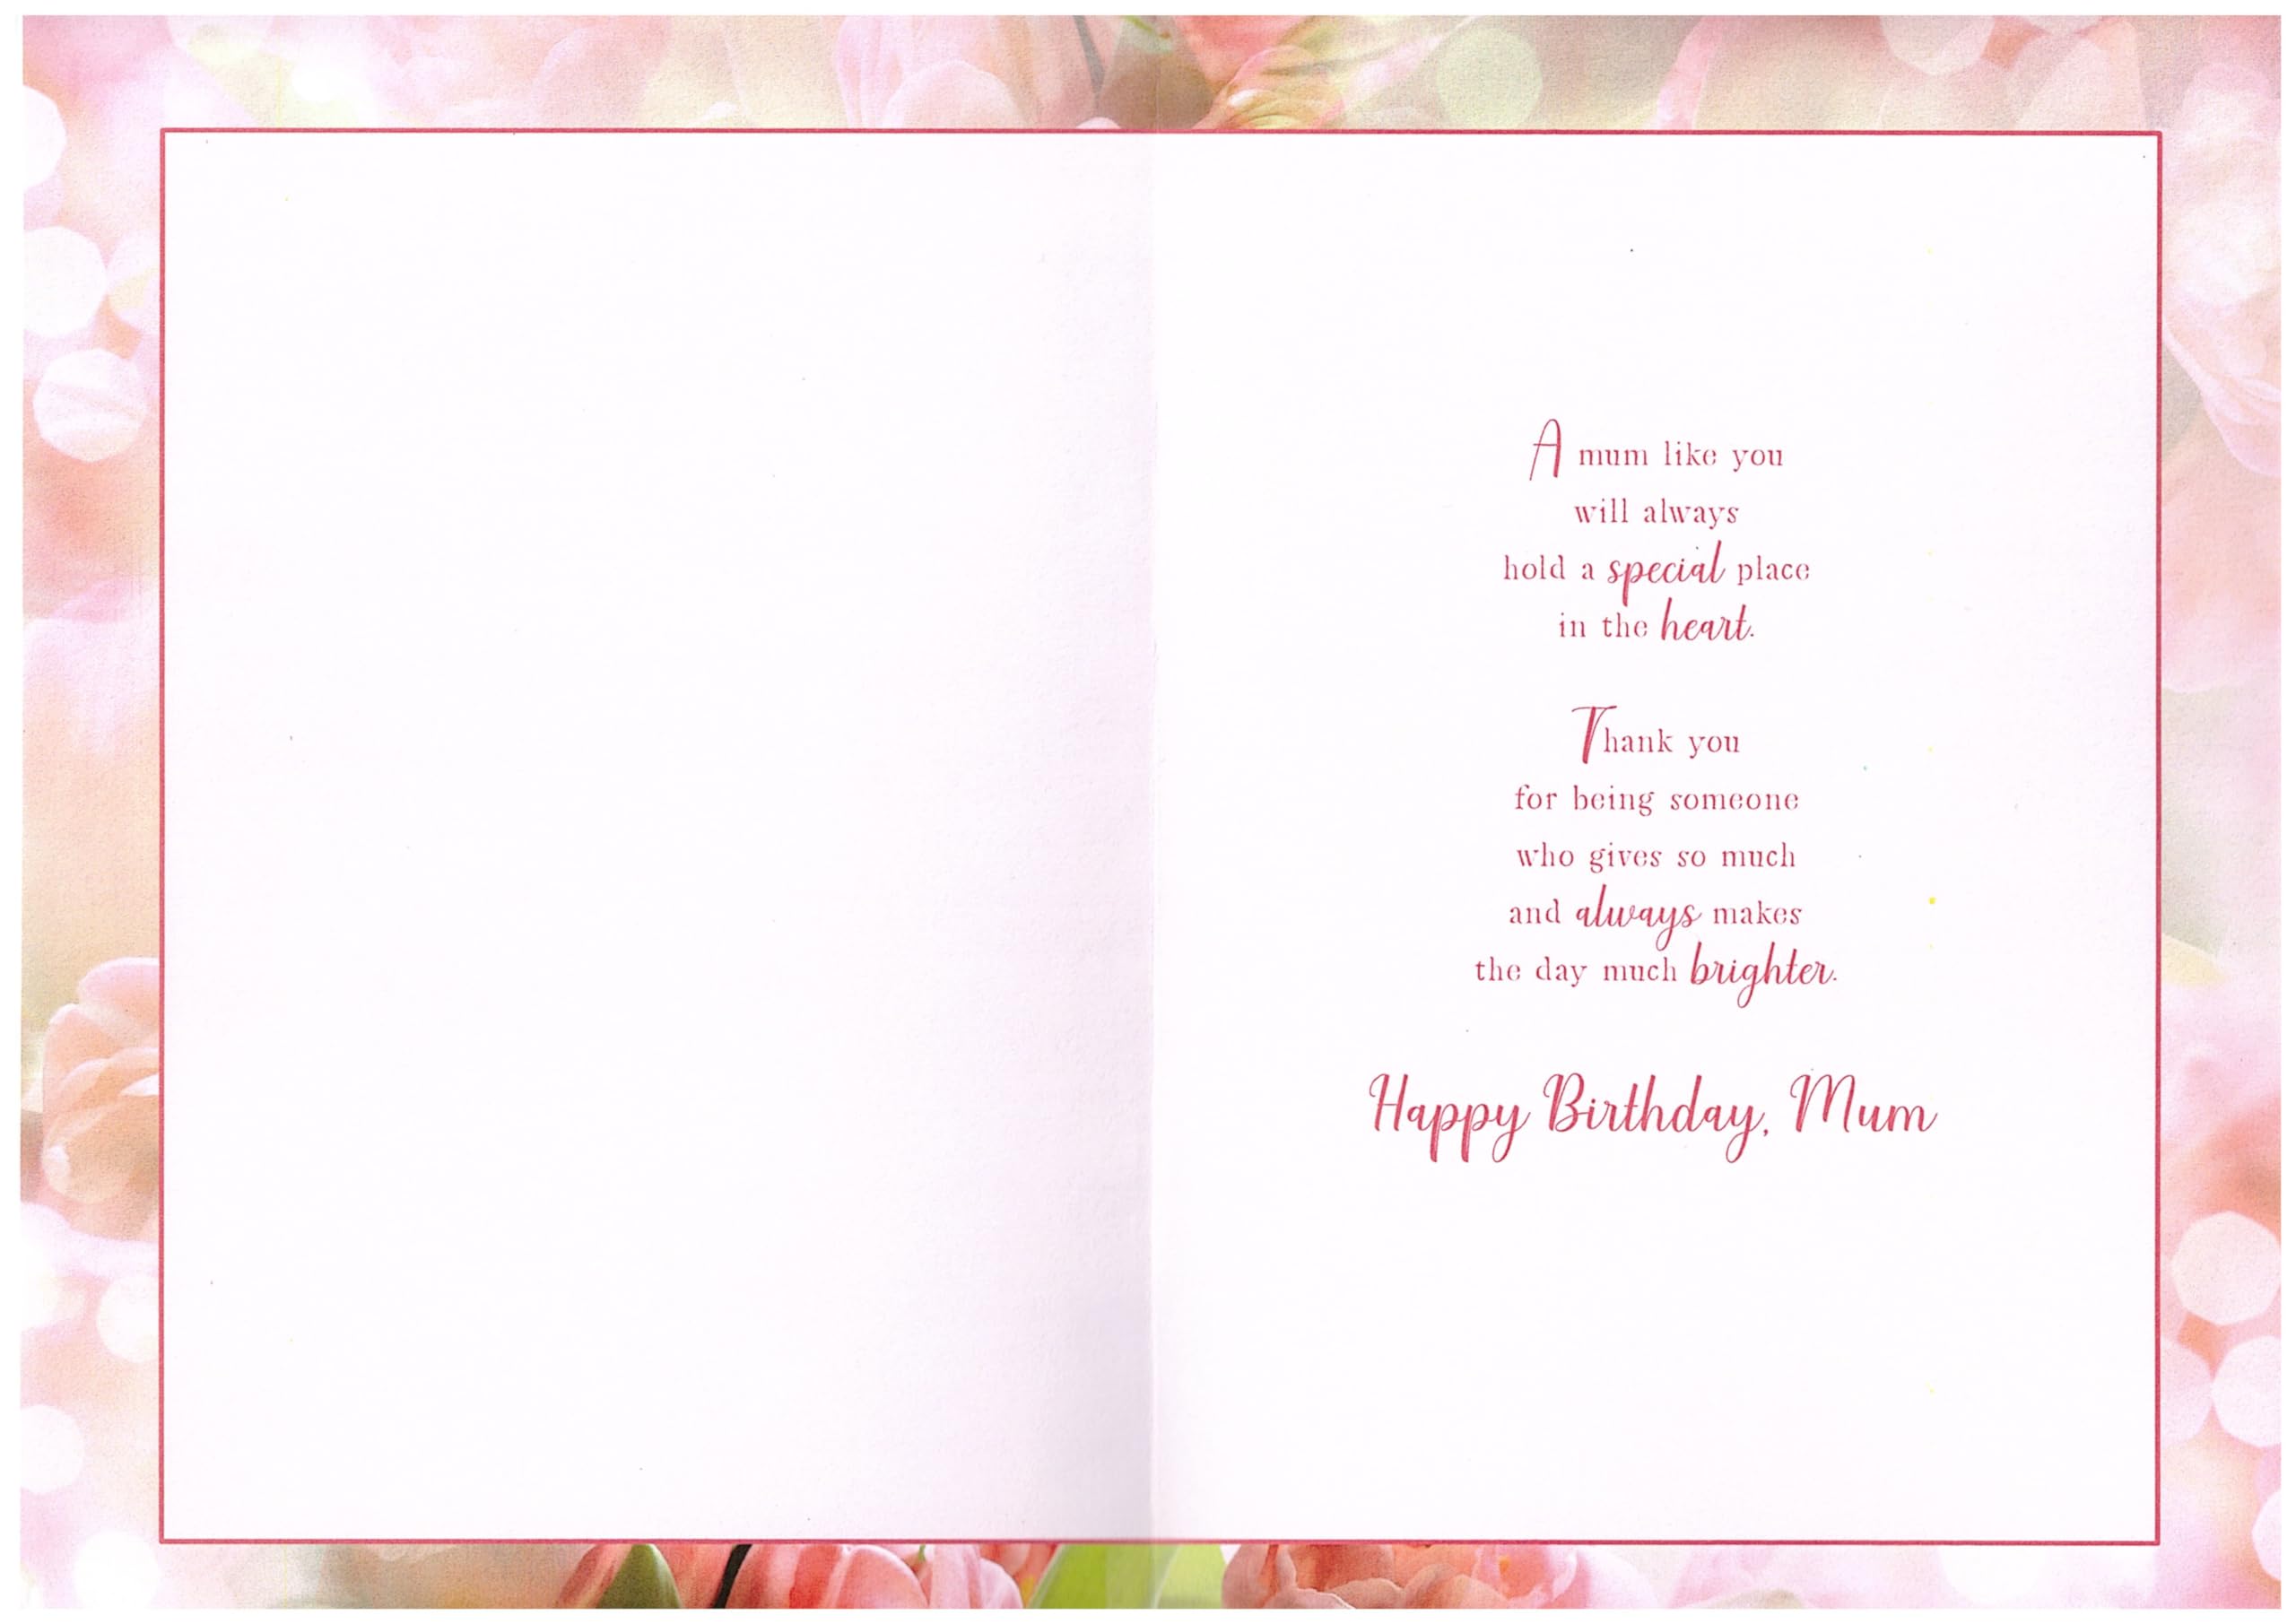 A mum like you
will always
hold a special place
in the heart.
Thank you
for being someone
who gives so much
and always makes
the day much brighter.
Happy Birthday, Mum